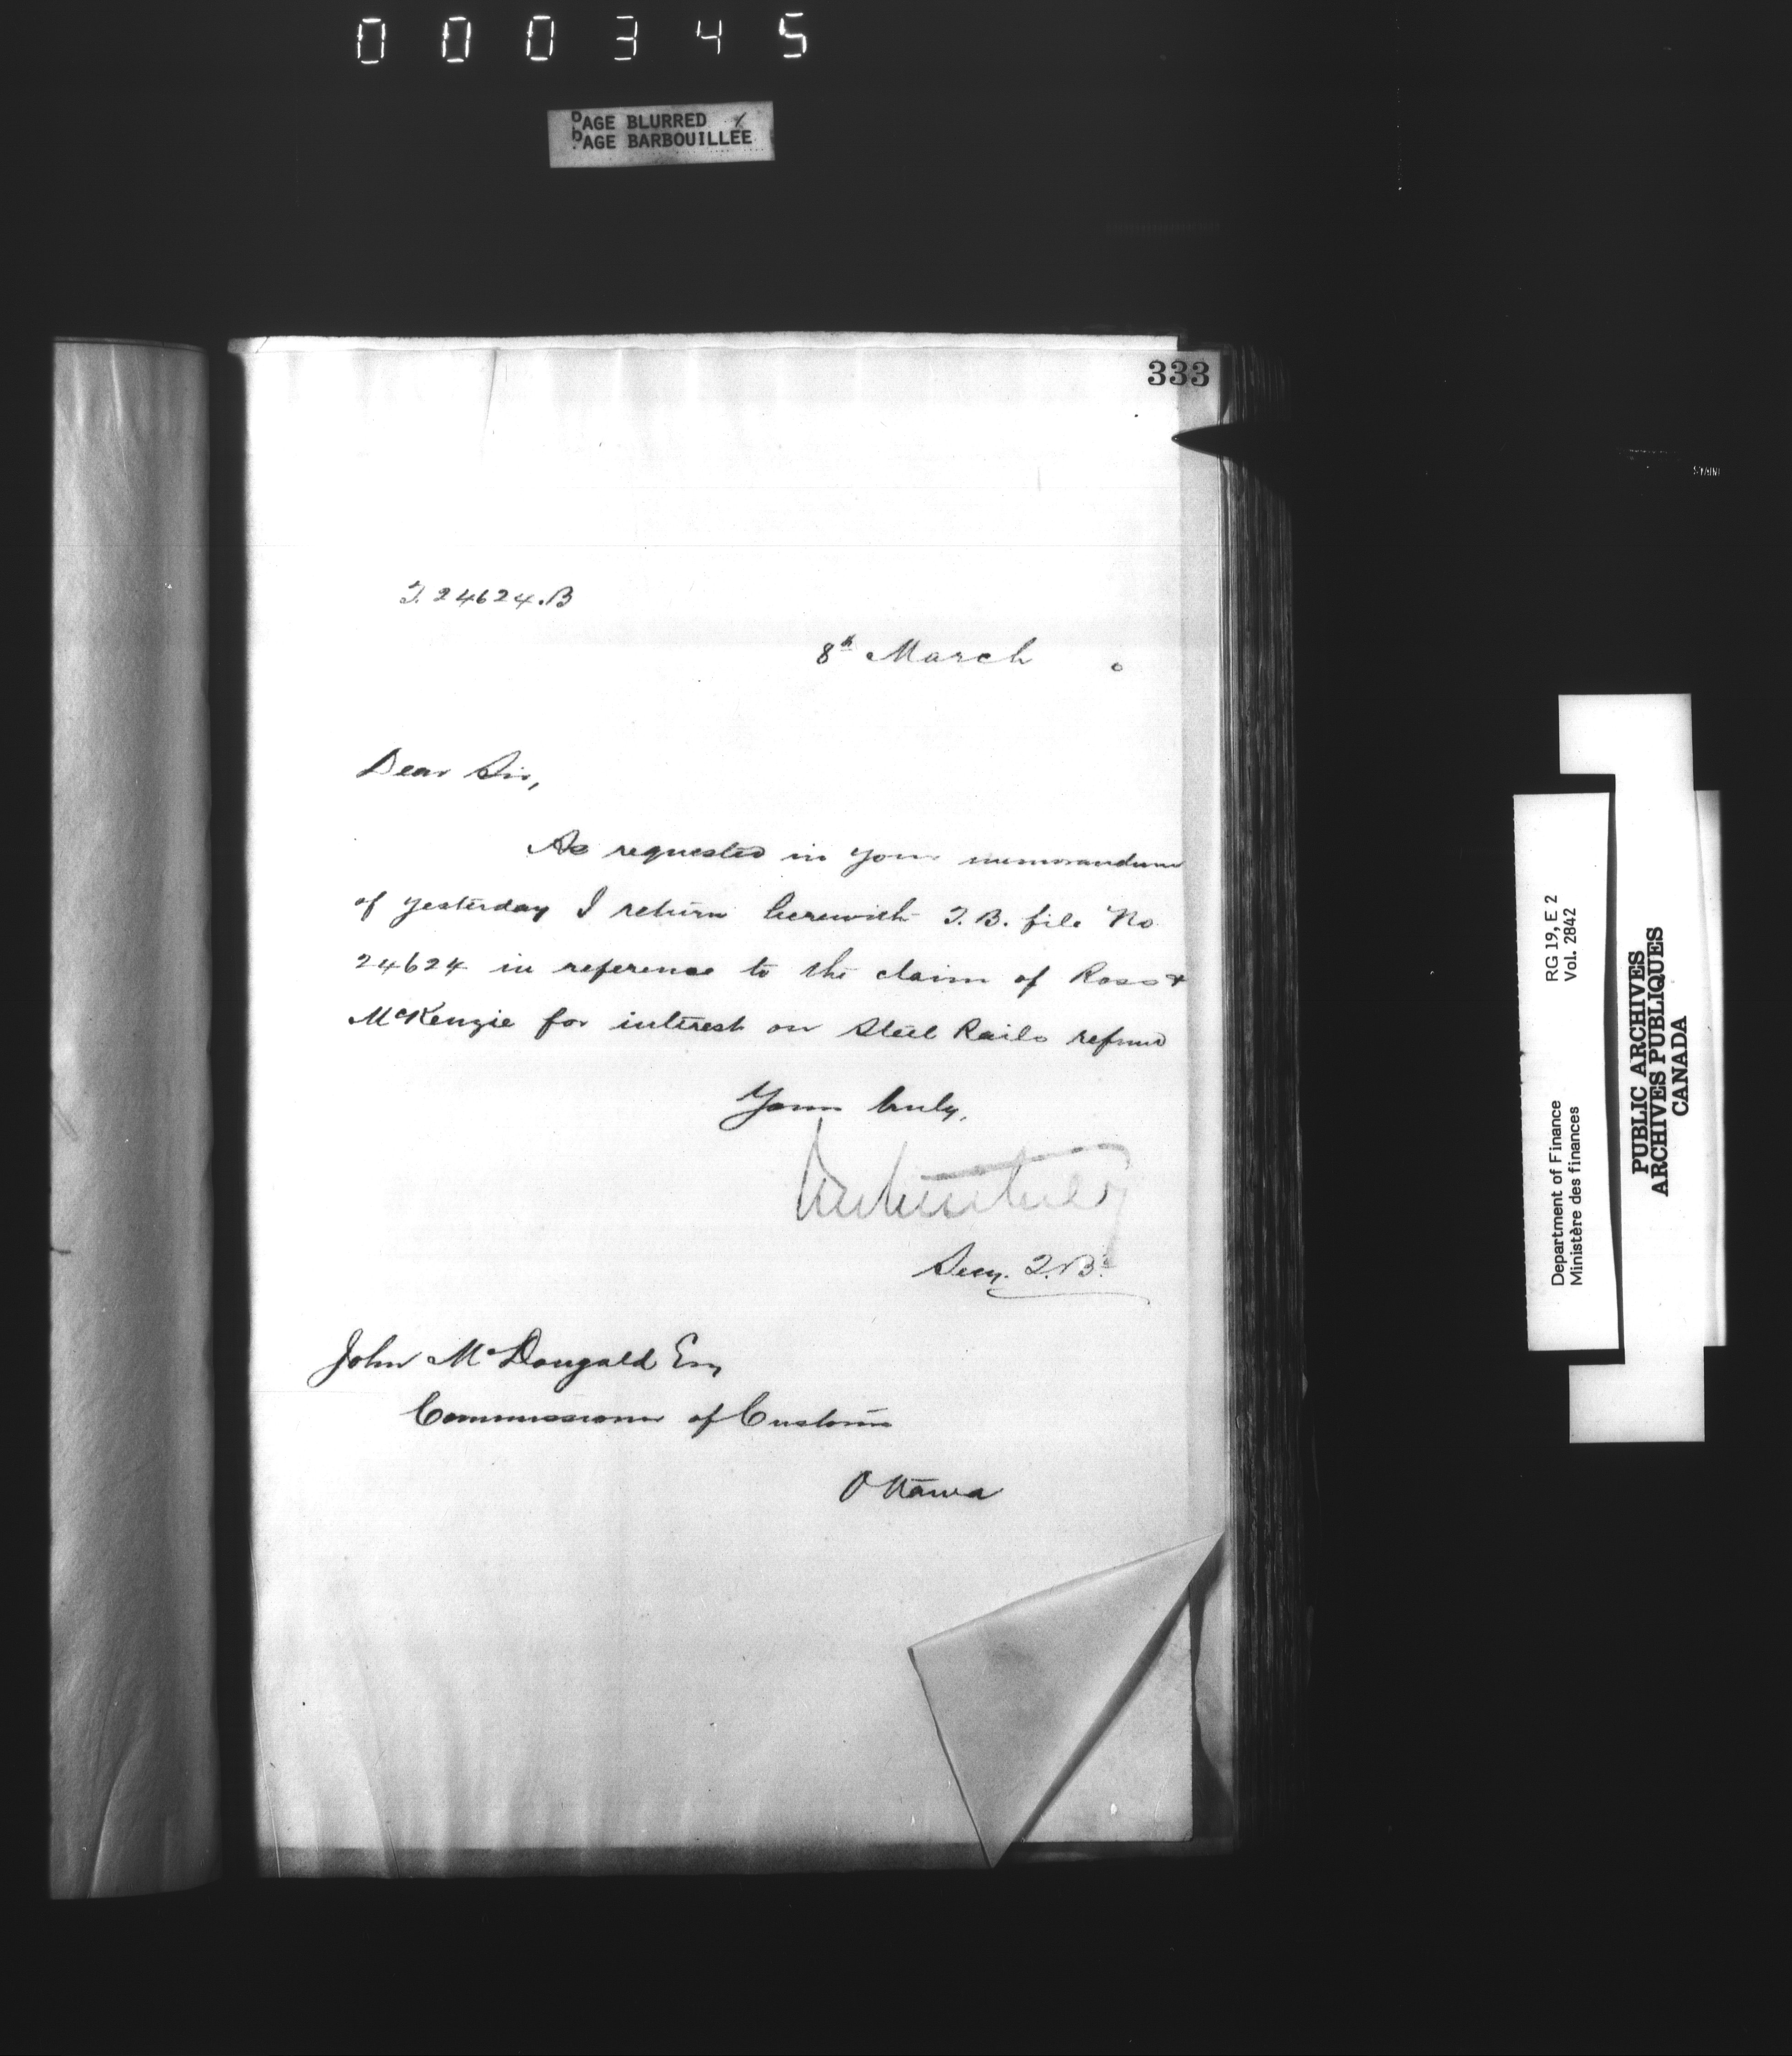 000345
PAGE BLURRED
PAGE BARBOUILLÉE
333
T. 24624.B
8th March 0
Dear Sir,
As requested in your memorandum
of yesterday I return herewith T.B. file No
24624 in reference to the claim of Ross &
McKenzie for interest on Steel Rails refund
Yours truly,
Secy. T.B.
John McDougald Esq
Commissioner of Customs
Ottawa
RG 19, E 2
Vol. 2842
Department of Finance
Ministère des finances
PUBLIC ARCHIVES
ARCHIVES PUBLIQUES
CANADA